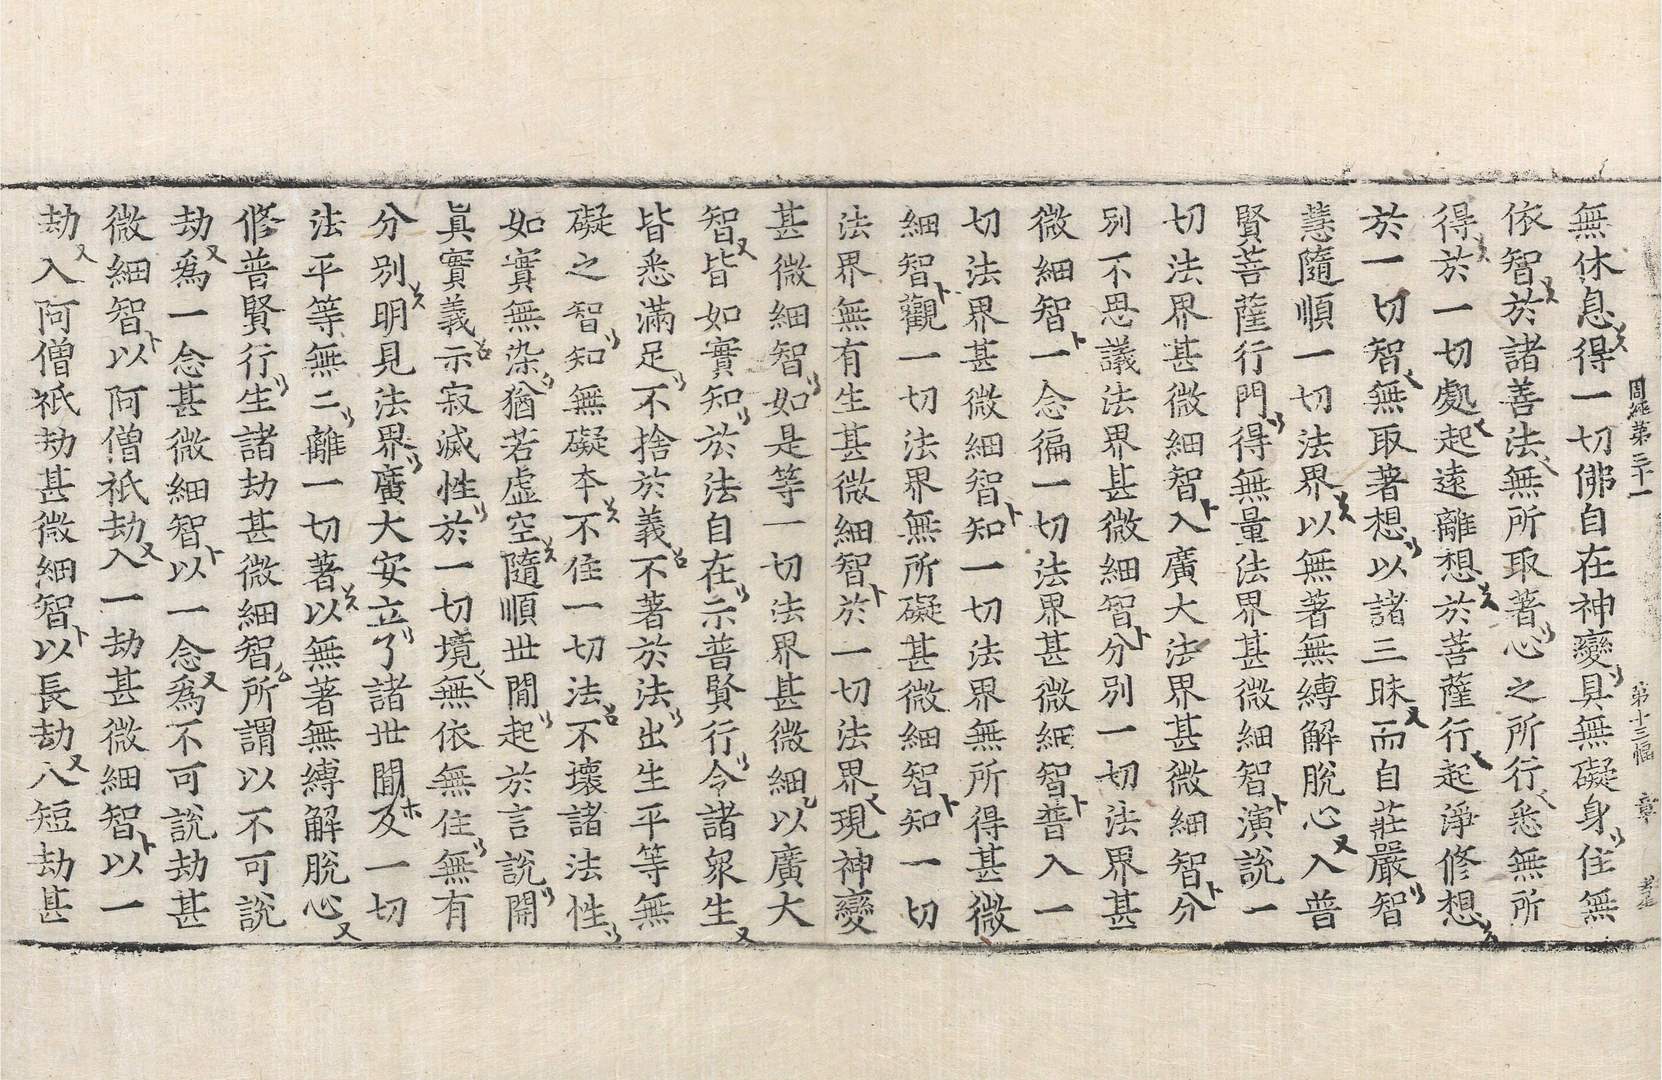 周經第三十一 第十三幅 章
無休息得一切佛自在神變具無礙身住無
依智於諸善法無所取著心之所行悉無所
得於一切處起遠離想於菩薩行起淨修想
於一切智無取著想以諸三昧而自莊嚴智
慧隨順一切法界以無著無縛解脫心入普
賢菩薩行門得無量法界甚微細智演說一
切法界甚微細智入廣大法界甚微細智分
別不思議法界甚微細智分別一切法界甚
微細智一念徧一切法界甚微細智普入一
切法界甚微細智知一切法界無所得甚微
細智觀一切法界無所礙甚微細智知一切
法界無有生甚微細智於一切法界現神變
甚微細智如是等一切法界甚微細以廣大
智皆如實知於法自在示普賢行令諸眾生
皆悉滿足不捨於義不著於法出生平等無
礙之智知無礙本不住一切法不壞諸法性
如實無染猶若虛空隨順世間起於言說開
眞實義示寂滅性於一切境無依無住無有
分別明見法界廣大安立了諸世間及一切
法平等無二離一切著以無著無縛解脫心
修普賢行生諸劫甚微細智所謂以不可說
劫爲一念甚微細智以一念爲不可說劫甚
微細智以阿僧祇劫入一劫甚微細智以一
劫入阿僧祇劫甚微細智以長劫入短劫甚